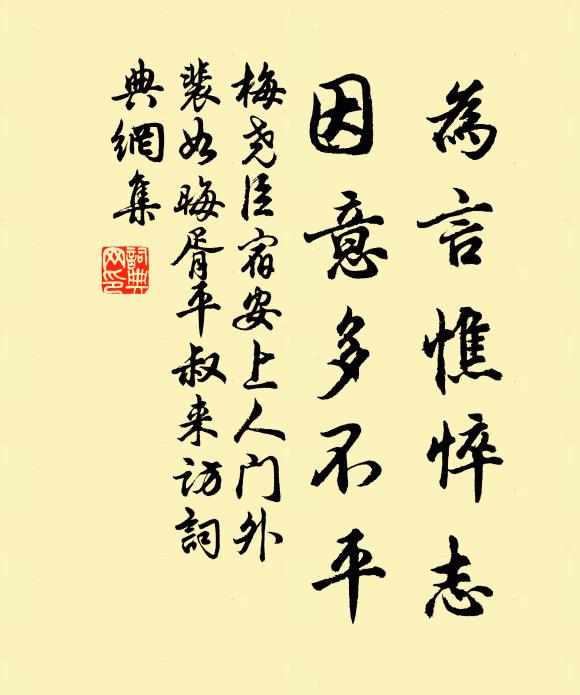 為言憔悴志
因意多不平
梅尧臣宿安上人门外
裴如晦胥平叔来访詞
典網集
詞典網印